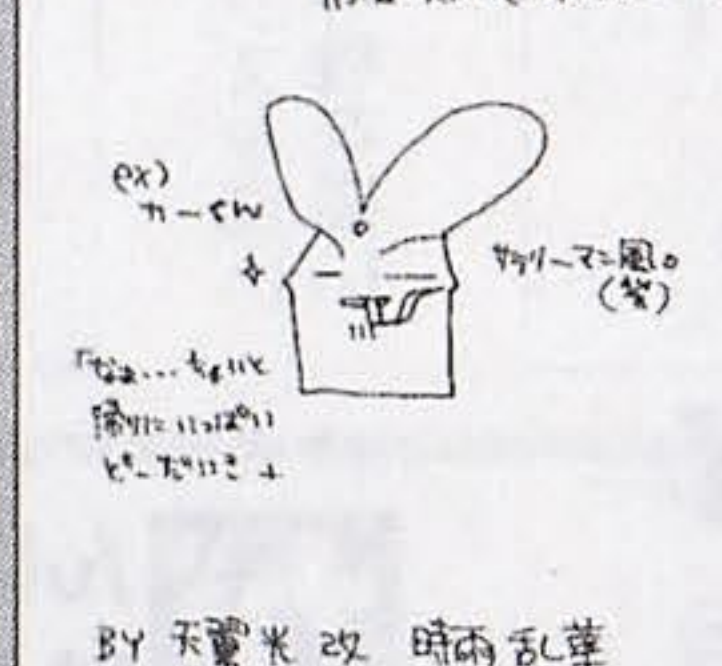 ex)
カーくん
サラリーマン風。
(笑)
「なぁ...ちょいと
帰りにいっぱい
どーだいき
BY 天翼光 改 時雨乱華